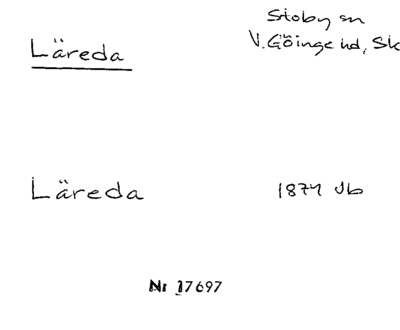 Stoby sn
Läreda
V. Göinge hd, Sk
Läreda
1874 Jb
Nr 17697